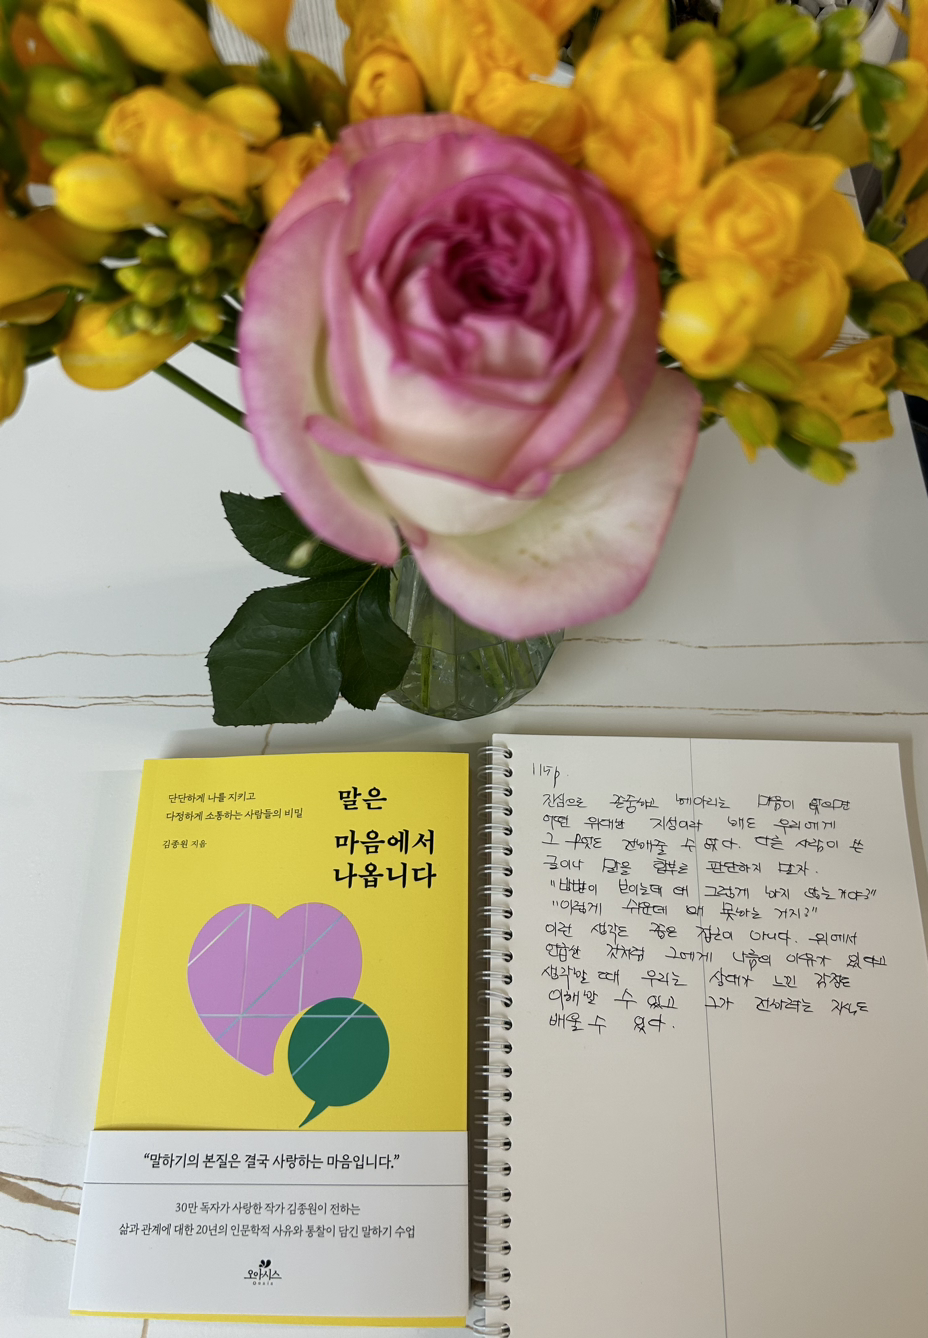 단단하게 나를 지키고
다정하게 소통하는 사람들의 비밀
김종원 지음
말은
마음에서
나옵니다
“말하기의 본질은 결국 사랑하는 마음입니다.”
30만 독자가 사랑한 작가 김종원이 전하는
삶과 관계에 대한 20년의 인문학적 사유와 통찰이 담긴 말하기 수업
오아시스
Oasis
115p.
진심으로 존중하고 헤아리는 마음이 없으면
어떤 위대한 지성이라 해도 우리에게
그 무엇도 전해줄 수 없다. 다른 사람이 쓴
글이나 말을 함부로 판단하지 말자.
"방법이 보이는데 왜 그렇게 하지 않는 거야?"
"이렇게 쉬운데 왜 못하는 거지?"
이런 생각은 좋은 접근이 아니다. 위에서
언급한 것처럼 그에게 나름의 이유가 있다고
생각할 때 우리는 상대가 느낀 감정도
이해할 수 있고 그가 전하려는 지식도
배울 수 있다.